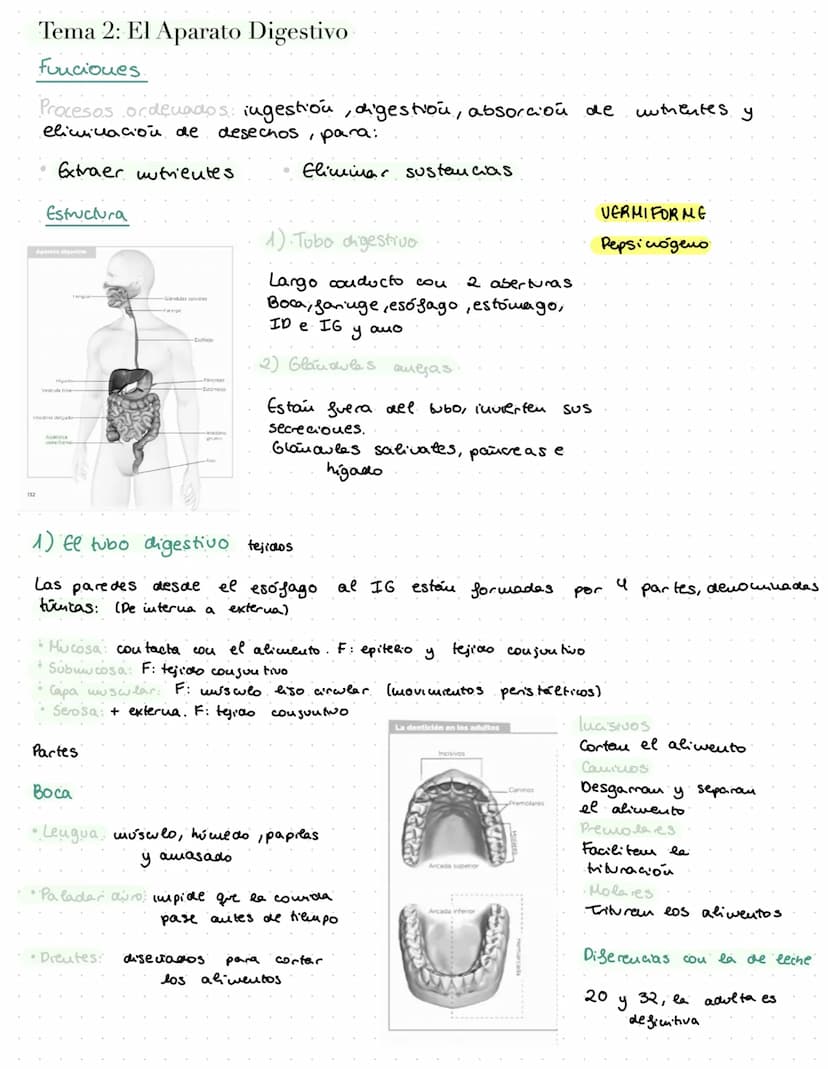 Tema 2: El Aparato Digestivo
Funciones
Procesos ordenados: ingestión, digestión, absorción de nutrientes y
eliminación de desechos, para:
• Extraer nutrientes
• Eliminar sustancias
Estructura
VERMIFORME
Pepsinógeno
Aparato digestivo
Lengua
Glándulas salivales
Faringe
Esófago
Hígado
Páncreas
Estómago
Intestino delgado
Ano
132
1) Tubo digestivo
Largo conducto con 2 aberturas
Boca, faringe, esófago, estómago,
ID e IG y ano
2) Glándulas anejas
Están fuera del tubo, invierten sus
secreciones.
Glándulas salivales, páncreas e
hígado
1) El tubo digestivo tejidos
Las paredes desde el esófago al IG están formadas por 4 partes, denominadas
túnicas: (De interna a externa)
• Mucosa: contacta con el alimento. F: epitelio y tejido conjuntivo
• Submucosa: F: tejido conjuntivo
• Capa muscular: F: músculo liso circular (movimientos peristálticos)
• Serosa: + externa. F: tejido conjuntivo
Partes
Boca
• Lengua: músculo, húmedo, papilas
y amasado
• Paladar duro: impide que la comida
pase antes de tiempo
• Dientes: diseñados para cortar
los alimentos
La dentición en los adultos
Incisivos
Caninos
Premolares
Molares
Arcada superior
Arcada inferior
Incisivos
Cortan el alimento
Caninos
Desgarran y separan
el alimento
Premolares
Faciliten la
trituración
Molares
Trituran los alimentos
Diferencias con la de leche
20 y 32, la adulta es
definitiva